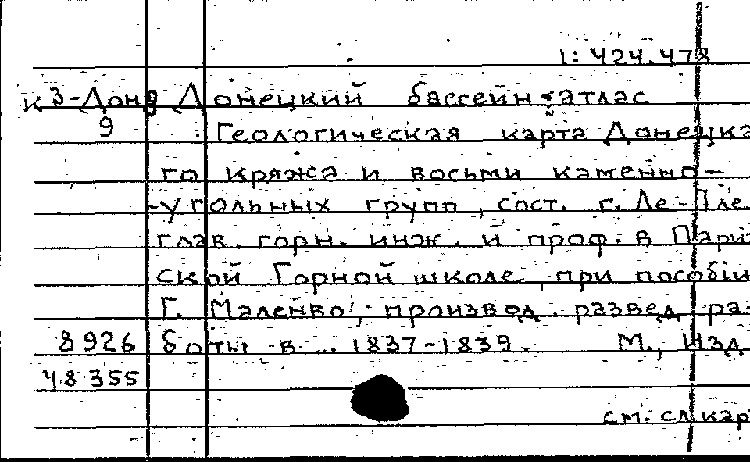 1: 424.473
к 3-Дон Донецкий бассейн-атлас
9 Геологическая карта Донецка
го кряжа и восьми каменно-
-угольных групп, сост. г. Ле-Пле
глав. горн. инж. и проф. в Пари
ской Горной школе, при пособіи
Г. Маленво, производ. развед. ра-
8926 боты в ... 1837-1839. М., Изд
48355
см. сл кар